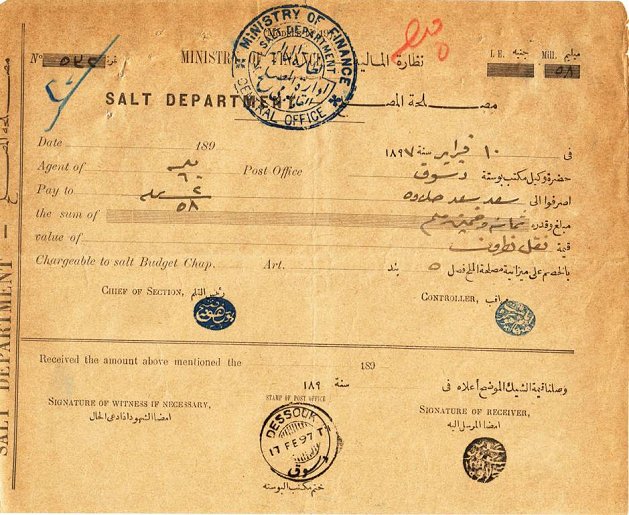 Nº ٥٤٢ نمرة
MINISTRY OF FINANCE نظارة المالية
L E. جنيه Mill. مليم
٥٨
MINISTRY OF FINANCE
SALT DEPARTMENT
CENTRAL OFFICE
SALT DEPARTMENT مصلحة الملح
Date 189 فى ١٠ فبراير سنة ١٨٩٧
Agent of Post Office حضرة وكيل مكتب بوستة دسوق
٦٠
Pay to اصرفوا الى سعد سعد
٢
٥٨
the sum of مبلغ وقدره ثمانية وخمسين مليم
value of قيمة نقل نطرون
Chargeable to salt Budget Chap. Art. بالخصم على ميزانية مصلحة الملح فصل ٥ بند
CHIEF OF SECTION, رئيس القلم
CONTROLLER, مراقب
Received the amount above mentioned the 189
وصلنا قيمة الشيك الموضح أعلاه فى سنة ١٨٩
SIGNATURE OF WITNESS IF NECESSARY, STAMP OF POST OFFICE SIGNATURE OF RECEIVER,
امضا الشهود اذا دعى الحال امضا المرسل اليه
DESSOUK
17 FE 97 T
دسوق
ختم مكتب البوسته
SALT DEPARTMENT — مصلحة الملح